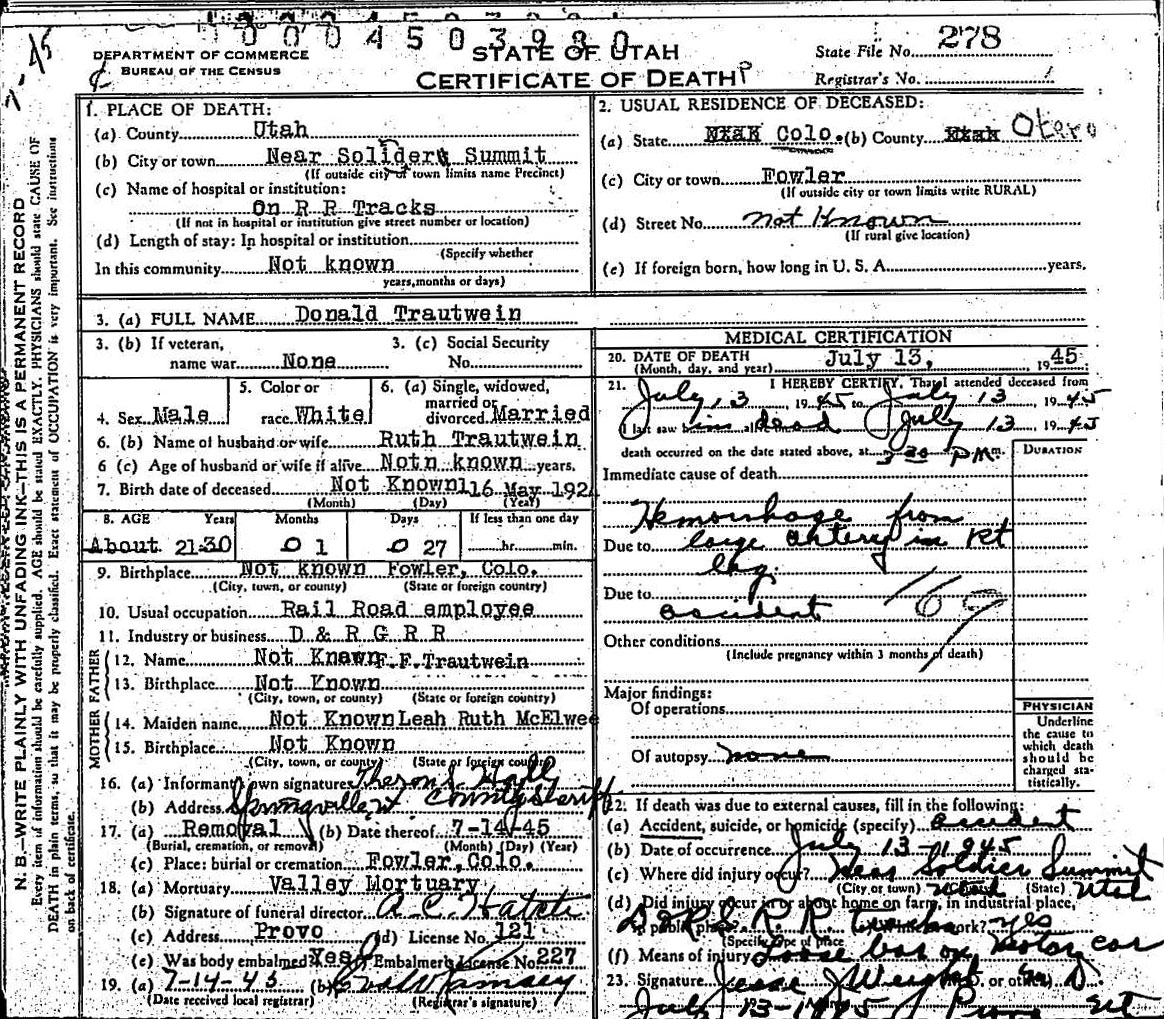 0 0 0 4 5 0 3 9 8 0
DEPARTMENT OF COMMERCE
BUREAU OF THE CENSUS
STATE OF UTAH
CERTIFICATE OF DEATH
State File No. 278
Registrar's No.
N. B.—WRITE PLAINLY WITH UNFADING INK—THIS IS A PERMANENT RECORD
Every item of information should be carefully supplied. AGE should be stated EXACTLY. PHYSICIANS should state CAUSE OF
DEATH in plain terms, so that it may be properly classified. Exact statement of OCCUPATION is very important. See instructions
on back of certificate.
1. PLACE OF DEATH:
(a) County Utah
(b) City or town Near Soliders Summit
(If outside city or town limits name Precinct)
(c) Name of hospital or institution:
On R R Tracks
(If not in hospital or institution give street number or location)
(d) Length of stay: In hospital or institution
(Specify whether
In this community Not known
years, months or days)
2. USUAL RESIDENCE OF DECEASED:
(a) State Utah Colo. (b) County Utah Otero
(c) City or town Fowler
(If outside city or town limits write RURAL)
(d) Street No. Not Known
(If rural give location)
(e) If foreign born, how long in U. S. A. years.
3. (a) FULL NAME Donald Trautwein
3. (b) If veteran, 3. (c) Social Security
name war None No.
4. Sex Male 5. Color or race White 6. (a) Single, widowed, married or divorced Married
6. (b) Name of husband or wife Ruth Trautwein
6 (c) Age of husband or wife if alive Notn known years.
7. Birth date of deceased Not Known 16 May 192
(Month) (Day) (Year)
8. AGE Years Months Days If less than one day
About 21-30 0 1 0 27 hr. min.
9. Birthplace Not known Fowler, Colo.
(City, town, or county) (State or foreign country)
10. Usual occupation Rail Road employee
11. Industry or business D & R G R R
FATHER
12. Name Not Known F.F.Trautwein
13. Birthplace Not Known
(City, town, or county) (State or foreign country)
MOTHER
14. Maiden name Not Known Leah Ruth McElwee
15. Birthplace Not Known
(City, town, or county) (State or foreign country)
16. (a) Informant's own signature Theron S. Hall
(b) Address Springville, Ut County Sheriff
17. (a) Removal (b) Date thereof 7-14-45
(Burial, cremation, or removal) (Month) (Day) (Year)
(c) Place: burial or cremation Fowler, Colo.
18. (a) Mortuary Valley Mortuary
(b) Signature of funeral director
(c) Address Provo (d) License No. 121
(e) Was body embalmed Yes Embalmer's License No. 227
19. (a) 7-14-45 (b)
(Date received local registrar) (Registrar's signature)
MEDICAL CERTIFICATION
20. DATE OF DEATH July 13, 1945
(Month, day, and year)
21. I HEREBY CERTIFY, That I attended deceased from
July 13 1945 to July 13 1945
I last saw him alive dead July 13 1945
death occurred on the date stated above, at 3 20 P M m.
DURATION
Immediate cause of death
Hemorrhage from
Due to large artery in Rt
leg.
Due to
accident
169
Other conditions
(Include pregnancy within 3 months of death)
Major findings:
Of operations
Of autopsy none
PHYSICIAN
Underline
the cause to
which death
should be
charged sta-
tistically.
22. If death was due to external causes, fill in the following:
(a) Accident, suicide, or homicide (specify) accident
(b) Date of occurrence July 13-1945
(c) Where did injury occur? Near Soldier Summit
(City or town) Utah (State) Utah
(d) Did injury occur in or about home on farm, in industrial place,
in public place? D & R G R R tracks While at work? yes
(Specify type of place)
(f) Means of injury Loose bar on Motor car
23. Signature Jesse J Weight M. D. or other
July 13-1945 Provo Ut